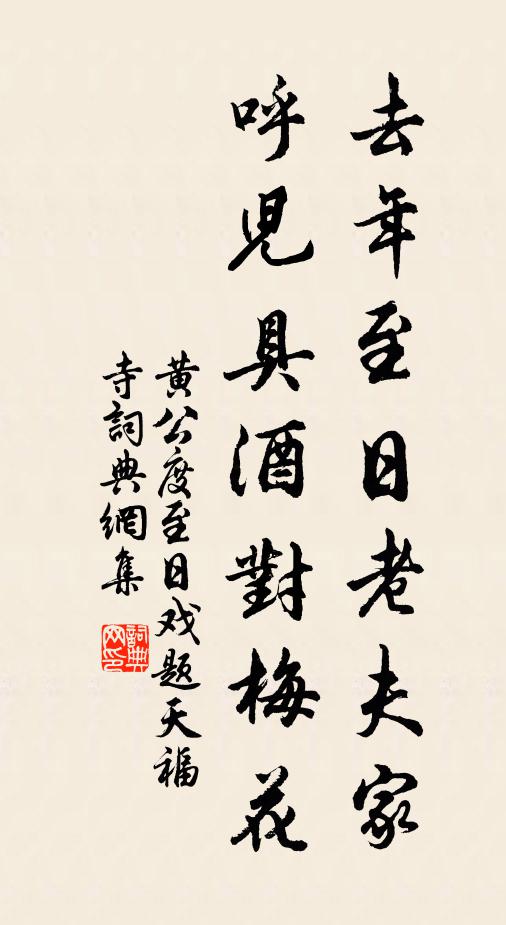 去年至日老夫家
呼児具酒對梅花
黄公度至日戏题天福
寺詞典網集
詞典网印